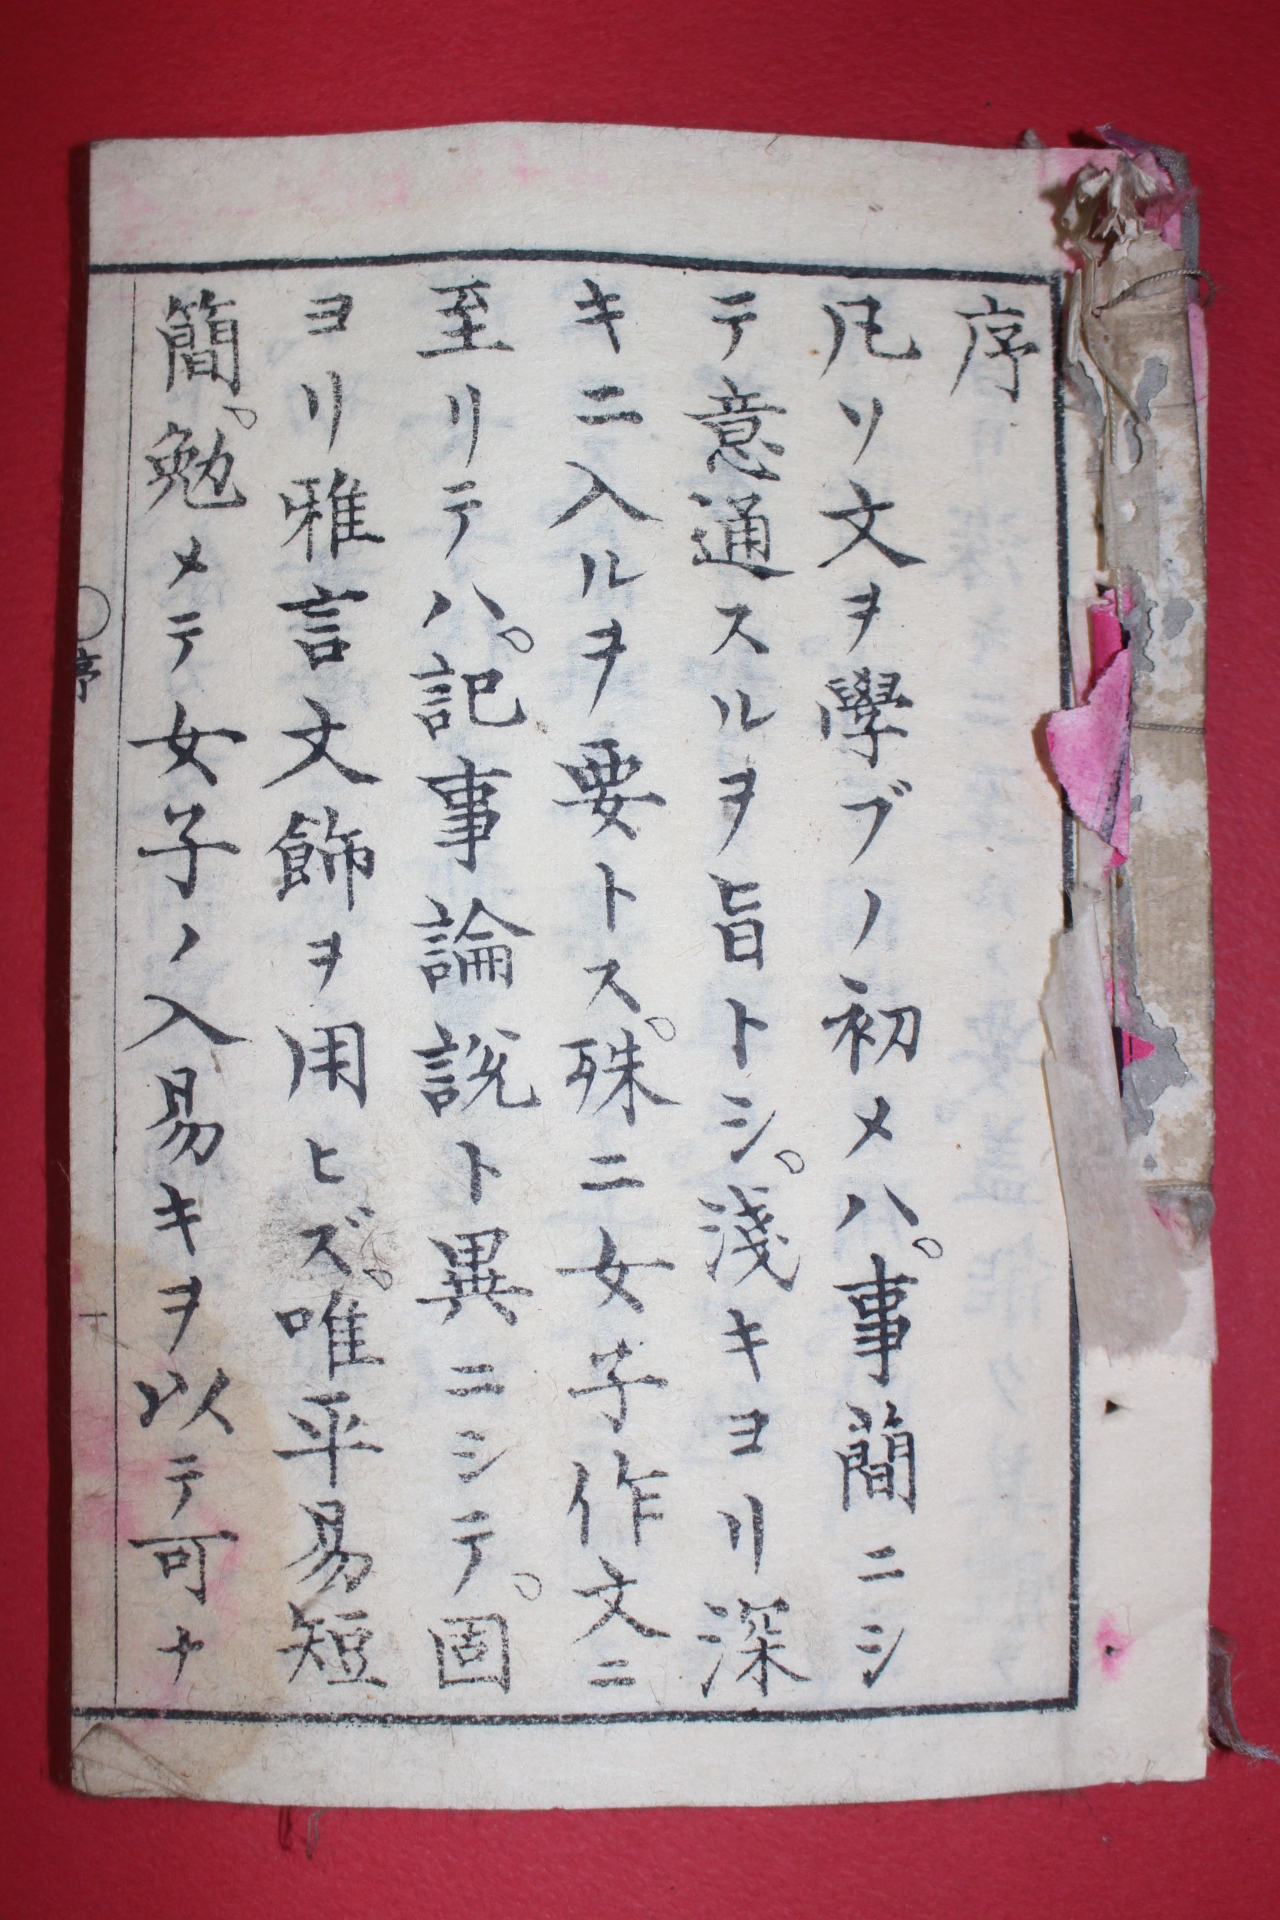 序
凡ソ文ヲ學ブノ初メハ。事簡ニシ
テ意通スルヲ旨トシ。淺キヨリ深
キニ入ルヲ要トス。殊ニ女子作文ニ
至リテハ。記事論説ト異ニシテ。固
ヨリ雅言文飾ヲ用ヒズ。唯平易短
簡。勉メテ女子ノ入易キヲ以テ可ナ
〇序